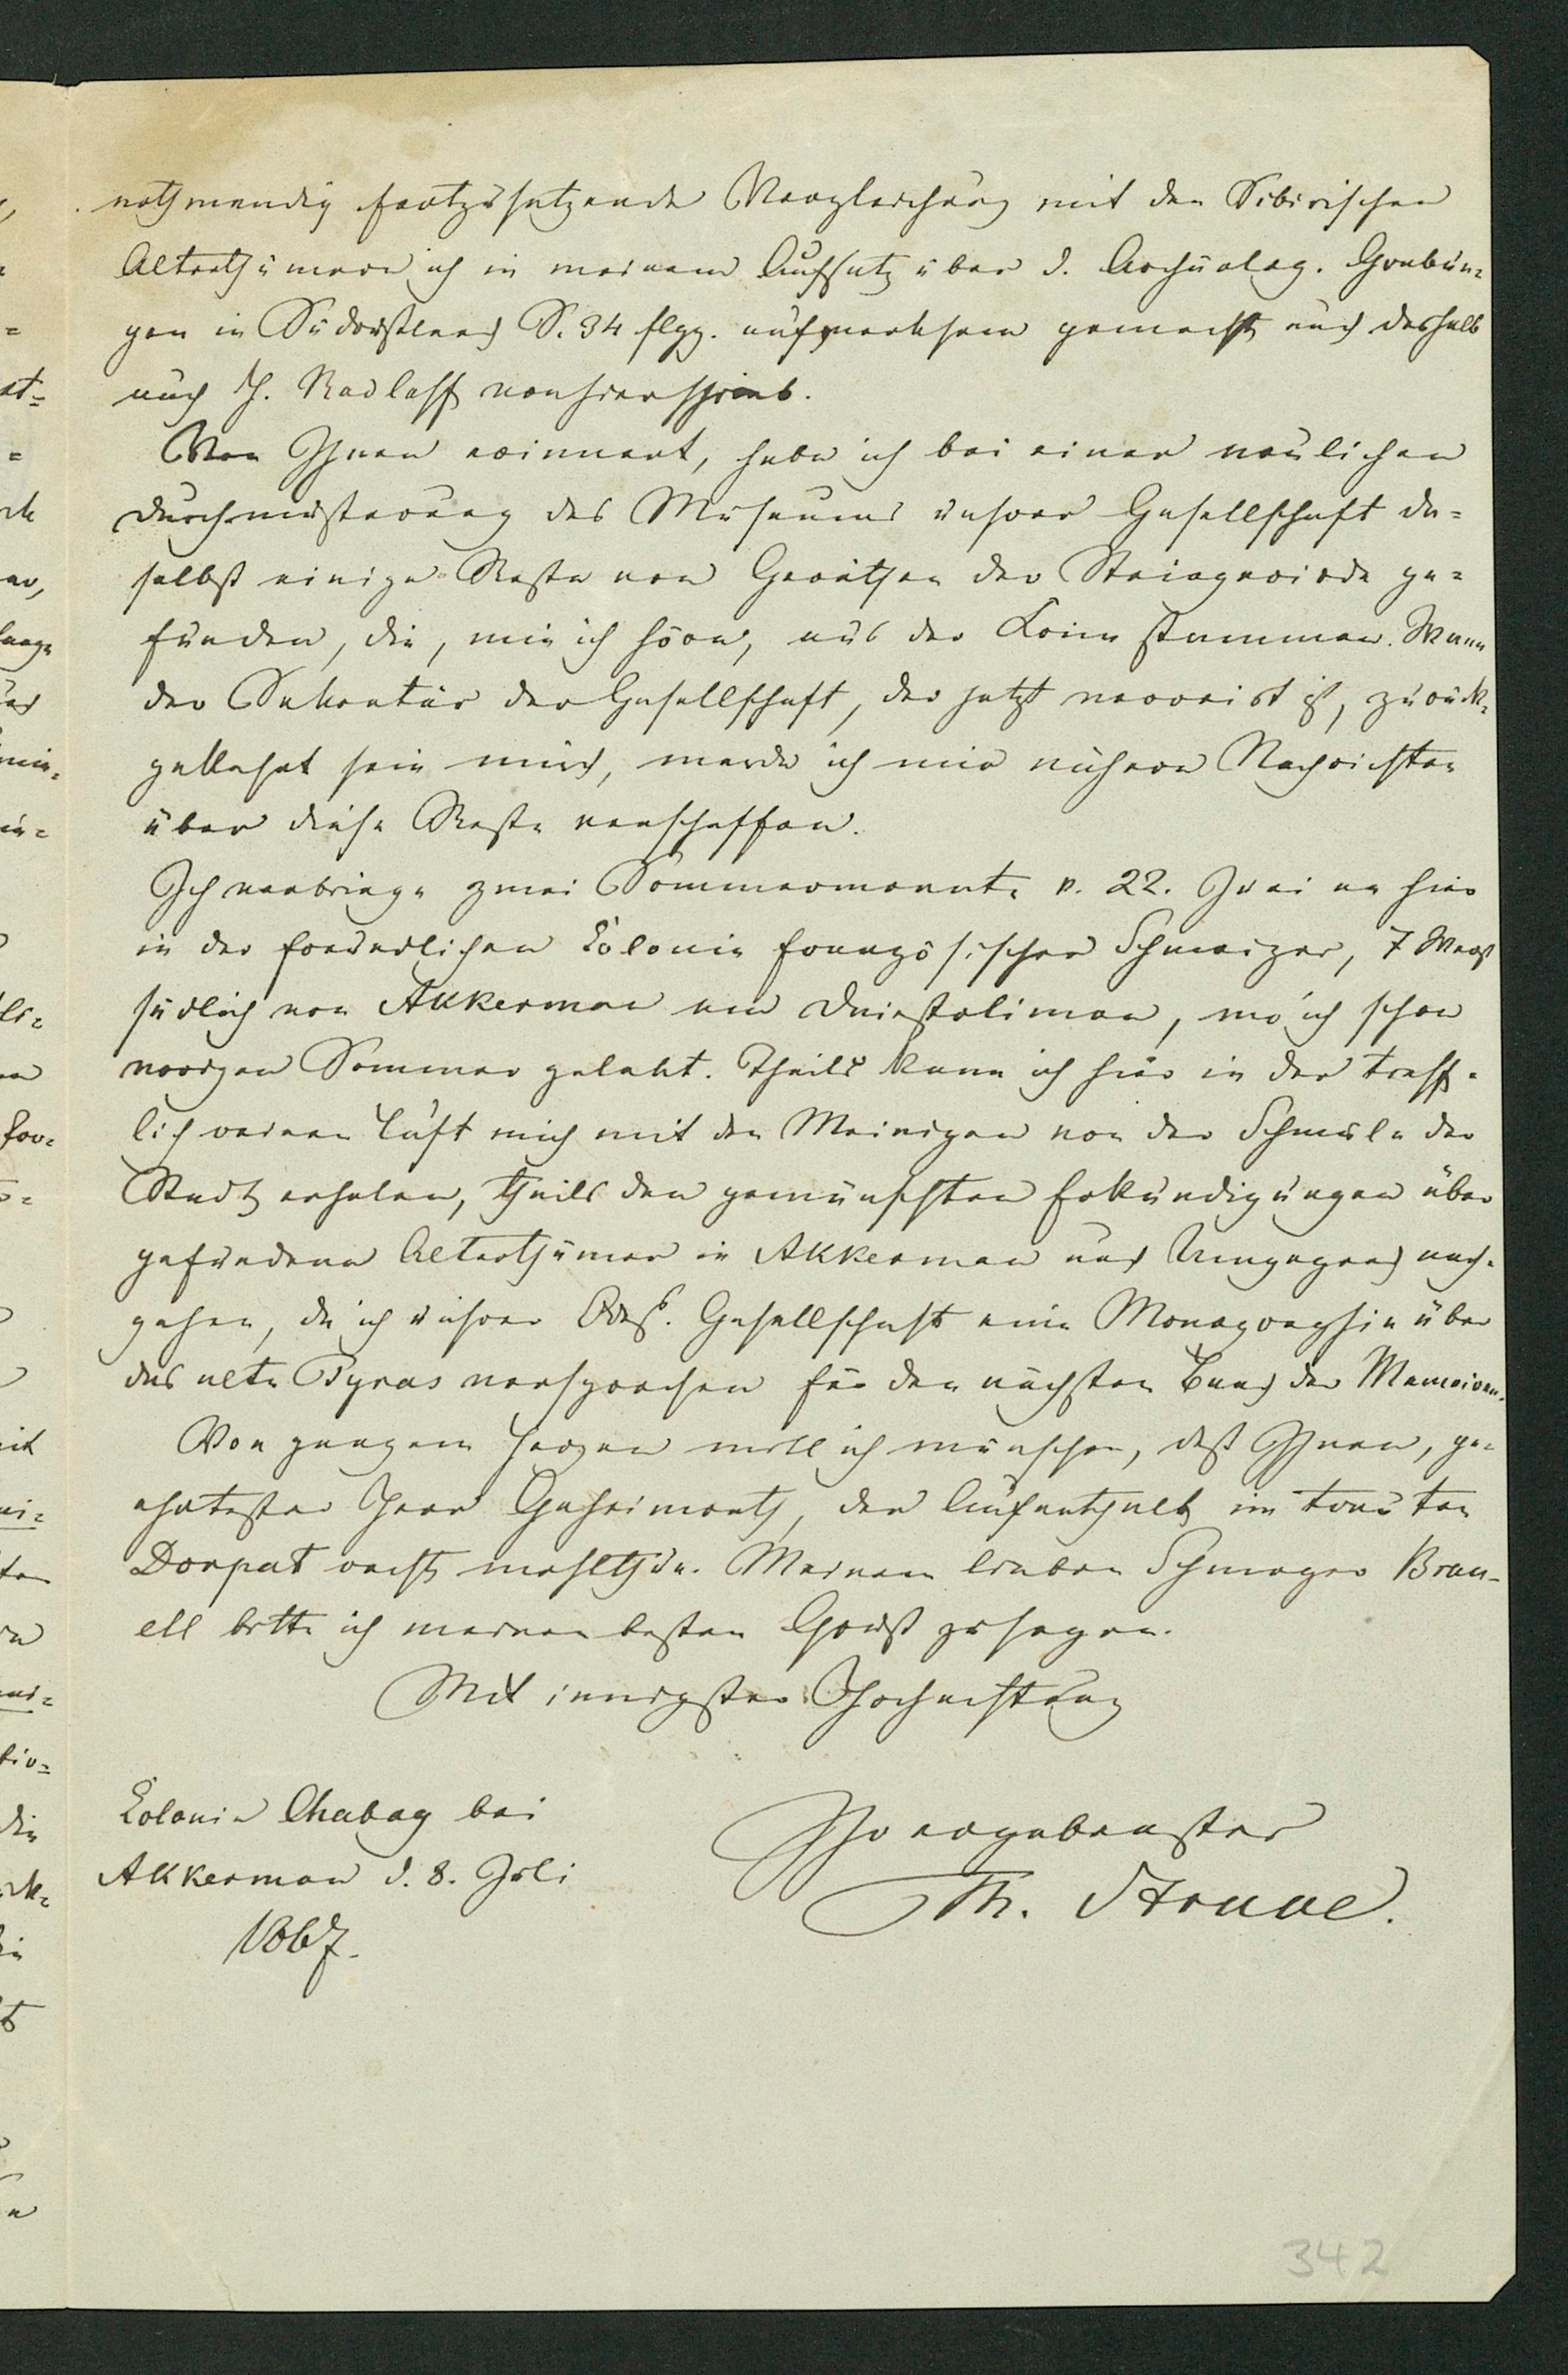 nothwendig fortzusetzende Vergleichung mit den Sibirischen
Alterthümern ich in meinem Aufsatz über d. Archäolog. Grabun=
gen in Südrußland S. 34 flgg. aufmerksam gemacht und deshalb
auch H. Radloff schrieb.
Von Ihnen erinnert, habe ich bei einer neulichen
Durchmusterung des Museums unsrer Gesellschaft da=
selbst einige Reste von Geräthen der Steinperiode ge=
funden, die, wie ich höre, aus der Krim stammen. Wenn
der Sekretär der Gesellschaft, der jetzt verreist ist, zurück=
gekehrt sein wird, werde ich mir nähere Nachrichten
über diese Reste verschaffen.
Ich verbringe zwei Sommermonate v. 22. Juni an hier
in der freundlichen Colonie französischer Schweizer, 7 Werst
südlich von Akkerman am Dniestrliman, wo ich schon
vorigen Sommer gelebt. Theils kann ich hier in der treff=
lich reinen Luft mich mit den Meinigen von der Schwüle der
Stadt erholen, theils den gewünschten Erkundigungen über
gefundene Alterthümer in Akkerman und Umgegend nach=
gehen, da ich unsrer Odess. Gesellschaft eine Monographie über
das alte Tyras versprochen für den nächsten Band der Memoiren.
Von ganzem Herzen will ich wünschen, daß Ihnen, ge=
ehrtester Herr Geheimrath, der Aufenthalt im trauten
Dorpat recht wohlthue. Meinem lieben Schwager Brun=
ell bitte ich meinen besten Gruß zu sagen.
Mit innigster Hochachtung
Colonie Chabag bei
Akkerman d. 8. Juli
1867.
Ihr ergebenster
Th. Struve.
342